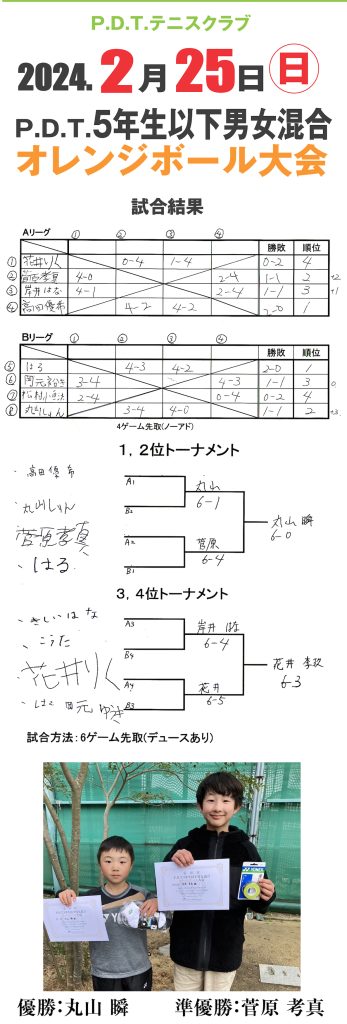 P.D.T.テニスクラブ
2024. 2月25日(日)
P.D.T.5年生以下男女混合
オレンジボール大会
試合結果
Aリーグ ① ② ③ ④
勝敗 順位
① 花井りく 0-4 1-4 0-2 4
② 菅原孝真 4-0 2-4 1-1 2 +2
③ 岸井はな 4-1 2-4 1-1 3 +1
④ 高田優希 4-2 4-2 2-0 1
Bリーグ ② ③ ④
勝敗 順位
⑤ はる 4-3 4-2 2-0 1
⑥ 3-4 4-3 1-1 3 0
⑦ 2-4 0-4 0-2 4
⑧ 丸山しゅん 3-4 4-0 1-1 2 +3
4ゲーム先取(ノーアド)
1,2位トーナメント
・高田優希
・丸山しゅん
菅原孝真
・はる
A1 丸山
6-1
B2
丸山 瞬
6-0
A2 菅原
6-4
B1
3,4位トーナメント
・きしいはな
・こうた
・花井りく
A3 岸井 はな
6-4
B4
花井
6-3
A4 花井
6-5
B3
試合方法:6ゲーム先取(デュースあり)
YONEX
優勝:丸山 瞬 準優勝:菅原 考真